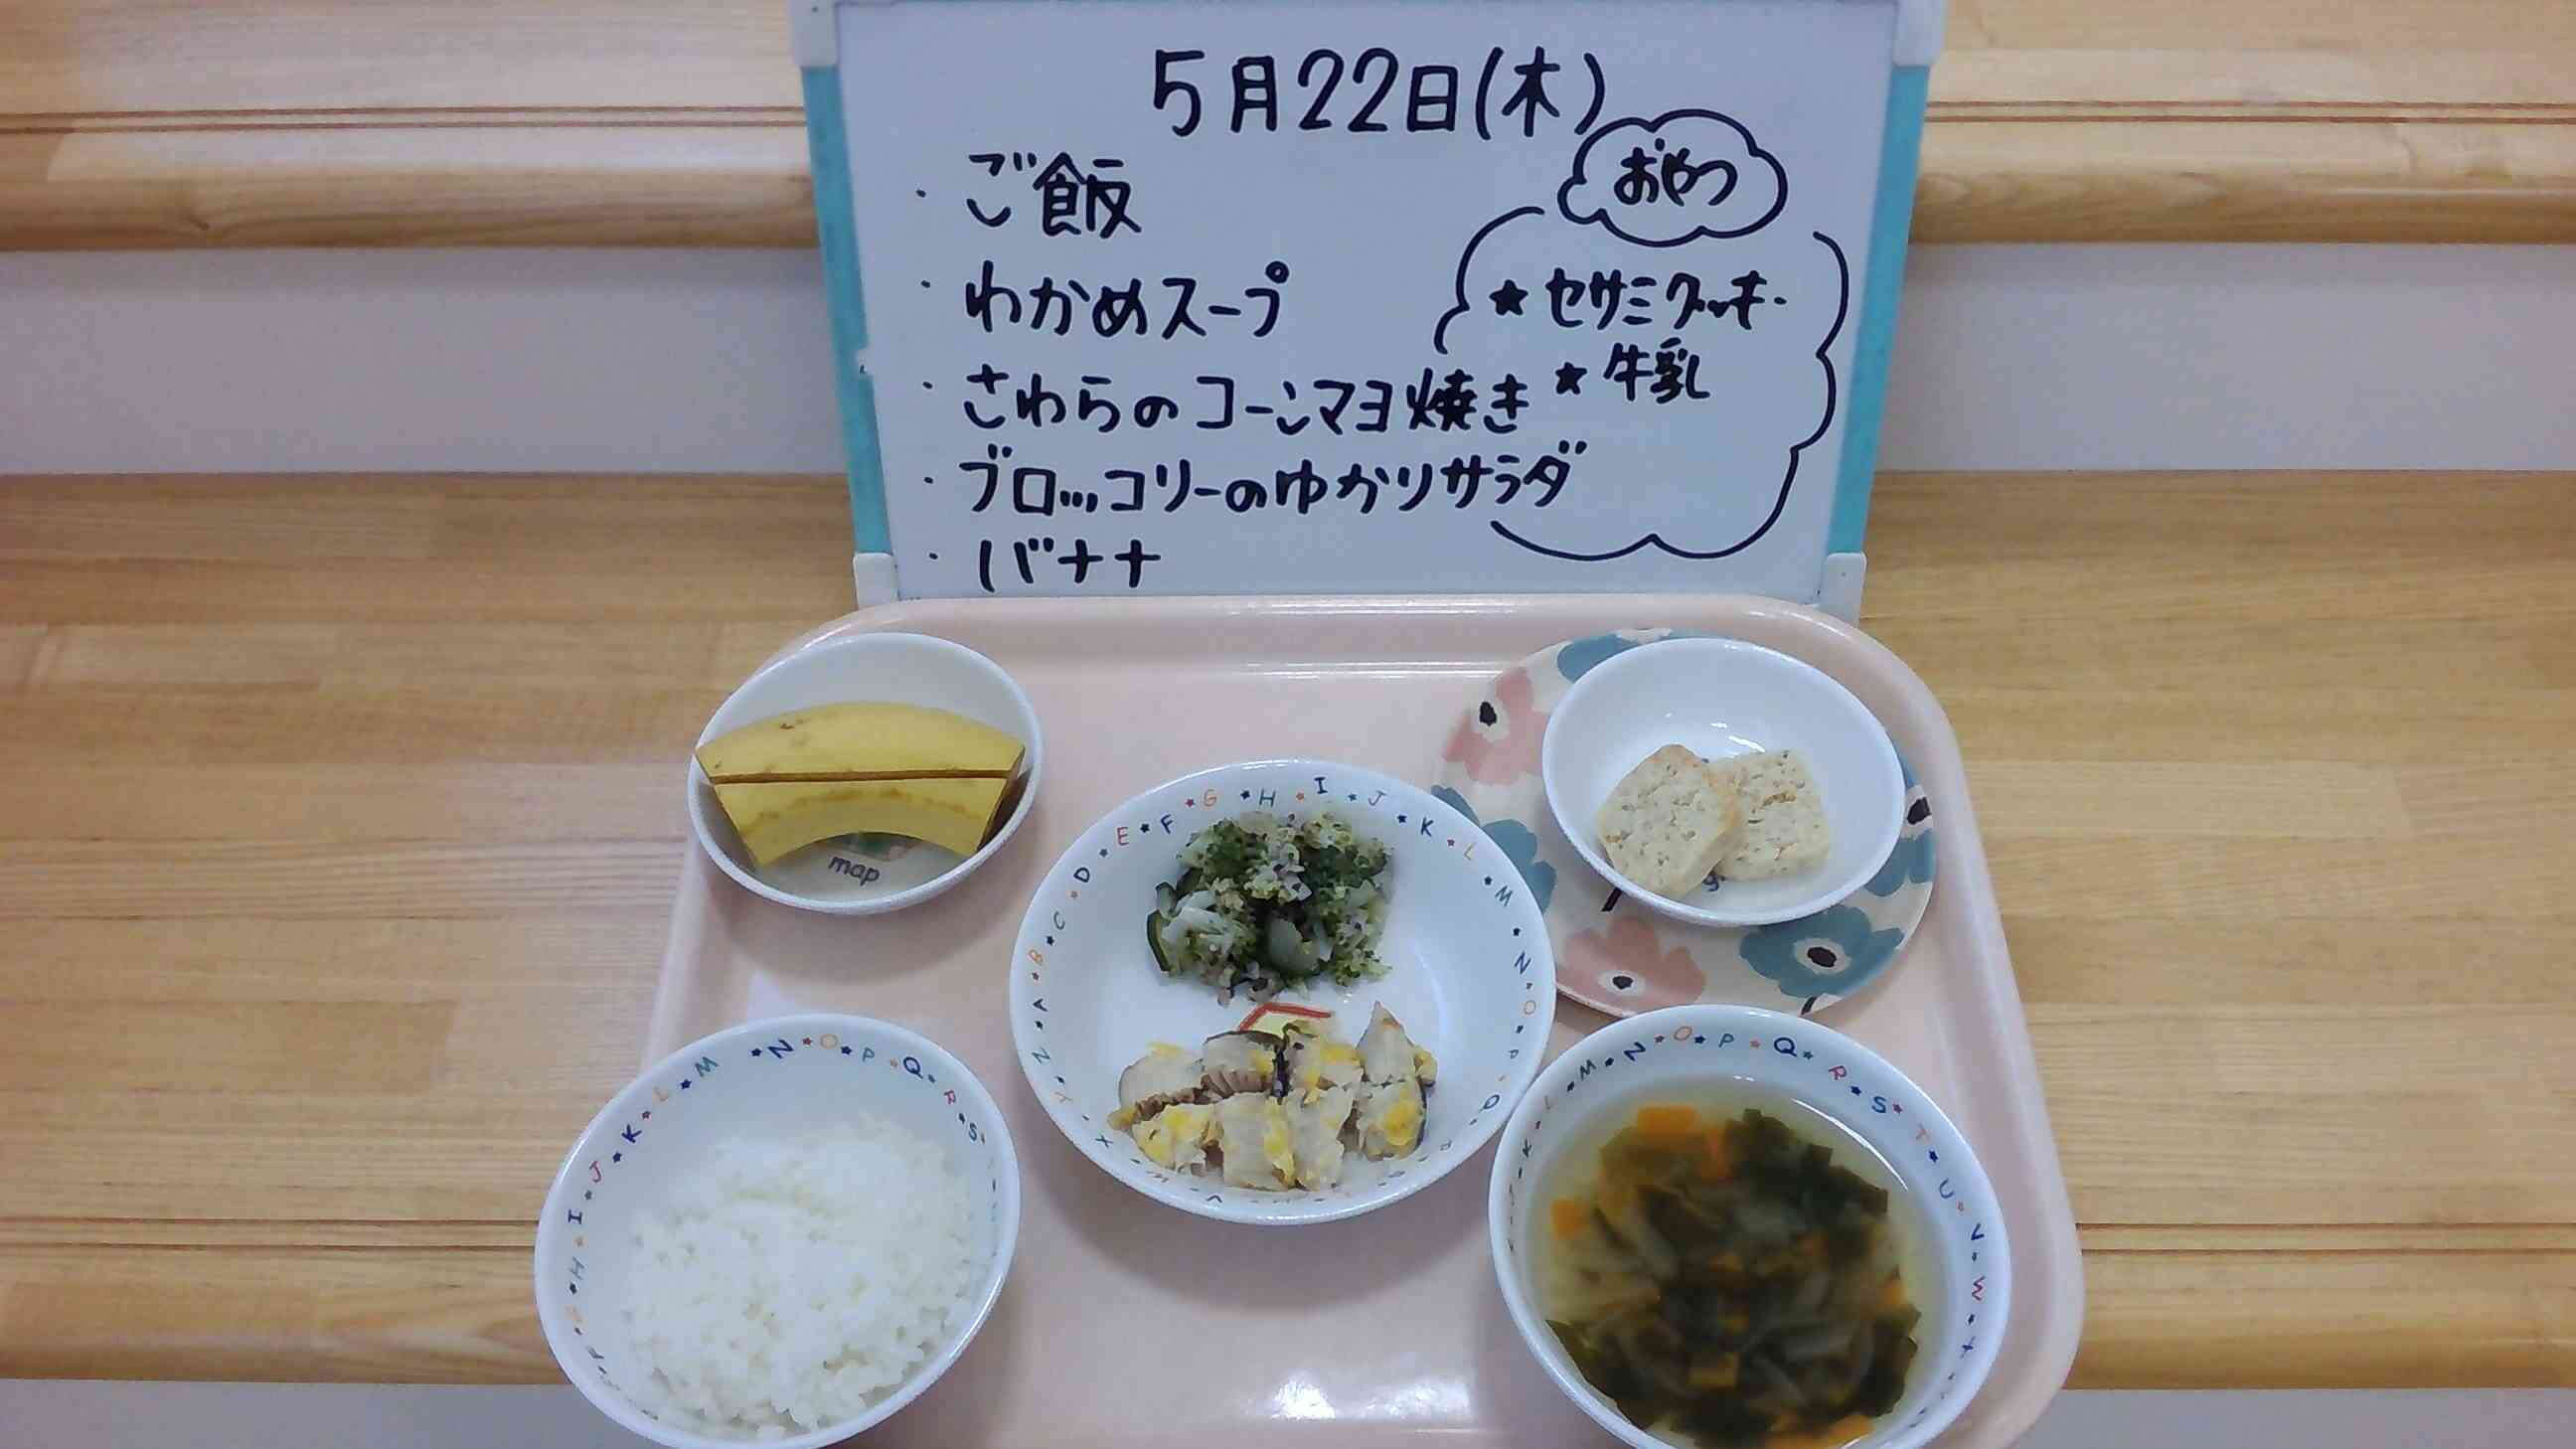 5月22日(木)
・ご飯
・わかめスープ
・さわらのコーンマヨ焼き
・ブロッコリーのゆかりサラダ
・バナナ
おやつ
★セサミクッキー
★牛乳
map
A B C D E F G H I J K L M N O P Q
H I J K L M N O P Q R S
K L M N O P Q R S T U V W X